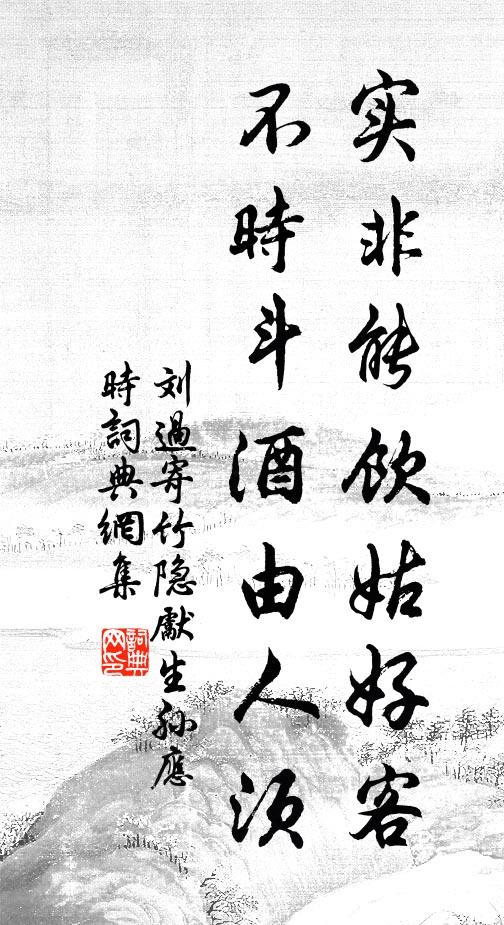 实非能饮姑好客
不時斗酒由人须
刘過寄竹隐獻生孙應
時詞典網集
詞典网印